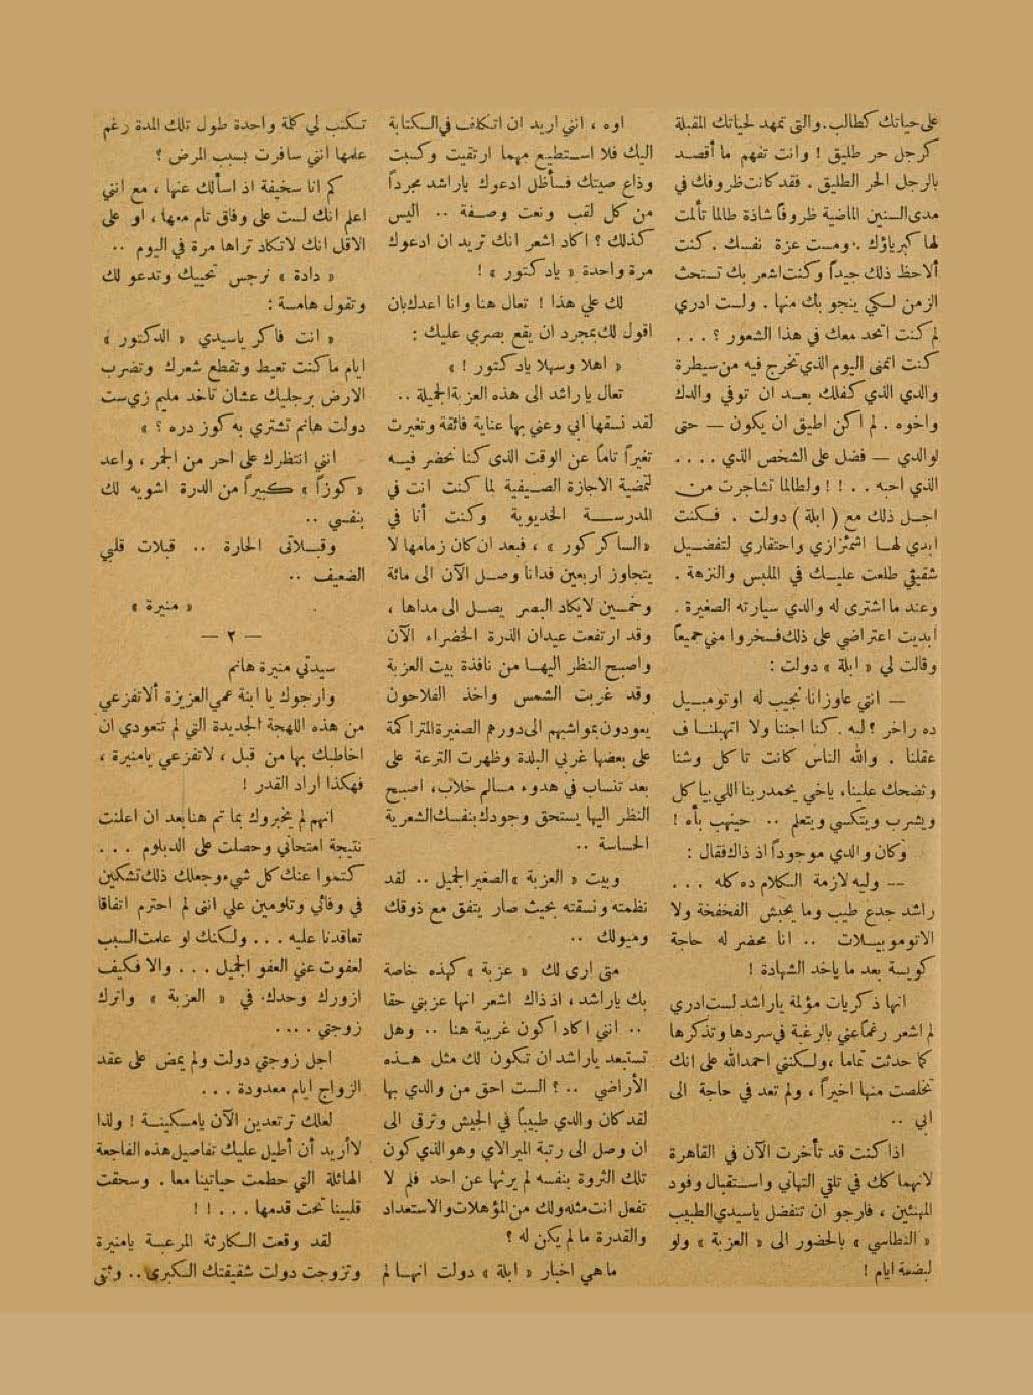 على حياتك كطالب. والتى تمهد لحياتك المقبلة
كرجل حر طليق ! وانت تفهم ما أقصد
بالرجل الحر الطليق . فقد كانت ظروفك في
مدى السنين الماضية ظروفاً شاذة طالما تألمت
لها كبرياؤك . ومست عزة نفسك . كنت
ألاحظ ذلك جيداً وكنت اشعر بك تستحث
الزمن لكي ينجو بك منها . ولست ادري
لم كنت اتحد معك في هذا الشعور ؟ . . .
كنت اتمنى اليوم الذي تخرج فيه من سيطرة
والدي الذي كفلك بعد ان توفي والدك
واخوه . لم اكن اطيق ان يكون — حتى
لوالدي — فضل على الشخص الذي . . . .
الذي احبه . . ! ! ولطالما تشاجرت من
اجل ذلك مع ( ابلة ) دولت . فكنت
ابدي لها اشمئزازي واحتقاري لتفضيل
شقيقي طلعت عليك في الملبس والنزهة .
وعند ما اشترى له والدي سيارته الصغيرة .
ابديت اعتراضي على ذلك فسخروا مني جميعاً
وقالت لي « ابلة » دولت :
— انتي عاوزانا نجيب له اوتومبيل
ده راخر ؟ ليه . كنا اجننا ولا اتهبلنا ف
عقلنا . والله الناس كانت تاكل وشنا
وتضحك علينا، ياخي يحمد ربنا اللي بياكل
ويشرب ويتكسي ويتعلم .. حينهب بأه !
وكان والدي موجوداً اذ ذاك فقال :
-- وليه لازمة الكلام ده كله . . .
راشد جدع طيب وما يحبش الفخفخة ولا
الاتوموبيلات .. انا محضر له حاجة
كويسة بعد ما ياخد الشهادة !
انها ذكريات مؤلمة ياراشد لست ادري
لم اشعر رغماً عني بالرغبة في سردها وتذكرها
كما حدثت تماما ، ولكنني احمد الله على انك
تخلصت منها اخيراً ، ولم تعد في حاجة الى
ابي ..
اذا كنت قد تأخرت الآن في القاهرة
لانهماكك في تلقي التهاني واستقبال وفود
المهنئين ، فارجو ان تتفضل ياسيدي الطبيب
« النطاسي » بالحضور الى « العزبة » ولو
لبضعة ايام !
اوه ، انني اريد ان اتكلف في الكتابة
اليك فلا استطيع مهما ارتقيت وكسبت
وذاع صيتك فسأظل ادعوك ياراشد مجرداً
من كل لقب ونعت وصفة .. اليس
كذلك ؟ اكاد اشعر انك تريد ان ادعوك
مرة واحدة « يادكتور » !
لك علي هذا ! تعال هنا وانا اعدك بان
اقول لك بمجرد ان يقع بصري عليك :
« اهلا وسهلا يادكتور ! »
تعال ياراشد الى هذه العزبة الجميلة ..
لقد نسقها ابي وعني بها عناية فائقة وتغيرت
تغيراً تاماً عن الوقت الذى كنا نحضر فيه
لتمضية الاجازة الصيفية لما كنت انت في
المدرسة الخديوية وكنت أنا في
«الساكركور » ، فبعد ان كان زمامها لا
يتجاوز اربعين فدانا وصل الآن الى مائة
وخمسين لا يكاد البصر يصل الى مداها ،
وقد ارتفعت عيدان الذرة الخضراء الآن
واصبح النظر اليها من نافذة بيت العزبة
وقد غربت الشمس واخذ الفلاحون
يعودون بمواشيهم الى دورهم الصغيرة المتراكمة
على بعضها غربي البلدة وظهرت الترعة على
بعد تنساب في هدوء مسالم خلاب، اصبح
النظر اليها يستحق وجودك بنفسك الشعرية
الحساسة ..
وبيت « العزبة » الصغير الجميل .. لقد
نظمته ونسقته بحيث صار يتفق مع ذوقك
وميولك ..
متى ارى لك « عزبة » كهذه خاصة
بك ياراشد ، اذ ذاك اشعر انها عزبتي حقا
.. انني اكاد اكون غريبة هنا .. وهل
تستبعد ياراشد ان تكون لك مثل هذه
الأراضي .. ؟ الست احق من والدي بها
لقد كان والدي طبيباً في الجيش وترقى الى
ان وصل الى رتبة الميرالاي وهو الذي كون
تلك الثروة بنفسه لم يرثها عن احد فلم لا
تفعل انت مثله ولك من المؤهلات والاستعداد
والقدرة ما لم يكن له ؟
ما هي اخبار « ابلة » دولت انها لم
تكتب لي كلمة واحدة طول تلك المدة رغم
علمها انني سافرت بسبب المرض ؟
كم انا سخيفة اذ اسألك عنها ، مع انني
اعلم انك لست على وفاق تام معها ، او على
الاقل انك لا تكاد تراها مرة في اليوم ..
« دادة » نرجس تحييك وتدعو لك
وتقول هامسة :
« انت فاكر ياسيدي « الدكتور »
ايام ما كنت تعيط وتقطع شعرك وتضرب
الارض برجليك عشان تاخد مليم زي ست
دولت هانم تشتري به كوز دره ؟ »
انني انتظرك على احر من الجمر ، واعد
« كوزاً » كبيراً من الدرة اشويه لك
بنفسي ..
وقبلاتى الحارة .. قبلات قلبي
الضعيف ..
« منيرة »
— ٢ —
سيدتي منيرة هانم
وارجوك يا ابنة عمي العزيزة ألا تفزعي
من هذه اللهجة الجديدة التي لم تتعودي ان
اخاطبك بها من قبل ، لا تفزعي يامنيرة ،
فهكذا اراد القدر !
انهم لم يخبروك بما تم هنا بعد ان اعلنت
نتيجة امتحاني وحصلت على الدبلوم . . .
كتموا عنك كل شيء وجعلك ذلك تشكين
في وفائي وتلومين علي انني لم احترم اتفاقا
تعاقدنا عليه . . . ولكنك لو علمت السبب
لعفوت عني العفو الجميل . . . والا فكيف
ازورك وحدك . في « العزبة » واترك
زوجتي . . . .
اجل زوجتي دولت ولم يمض على عقد
الزواج ايام معدودة . . .
لعلك ترتعدين الآن يامسكينة ! ولذا
لا أريد أن أطيل عليك تفاصيل هذه الفاجعة
الهائلة التي حطمت حياتينا معا . وسحقت
قلبينا تحت قدمها . . . ! !
لقد وقعت الكارثة المرعبة يامنيرة
وتزوجت دولت شقيقتك الكبرى .. وثقى